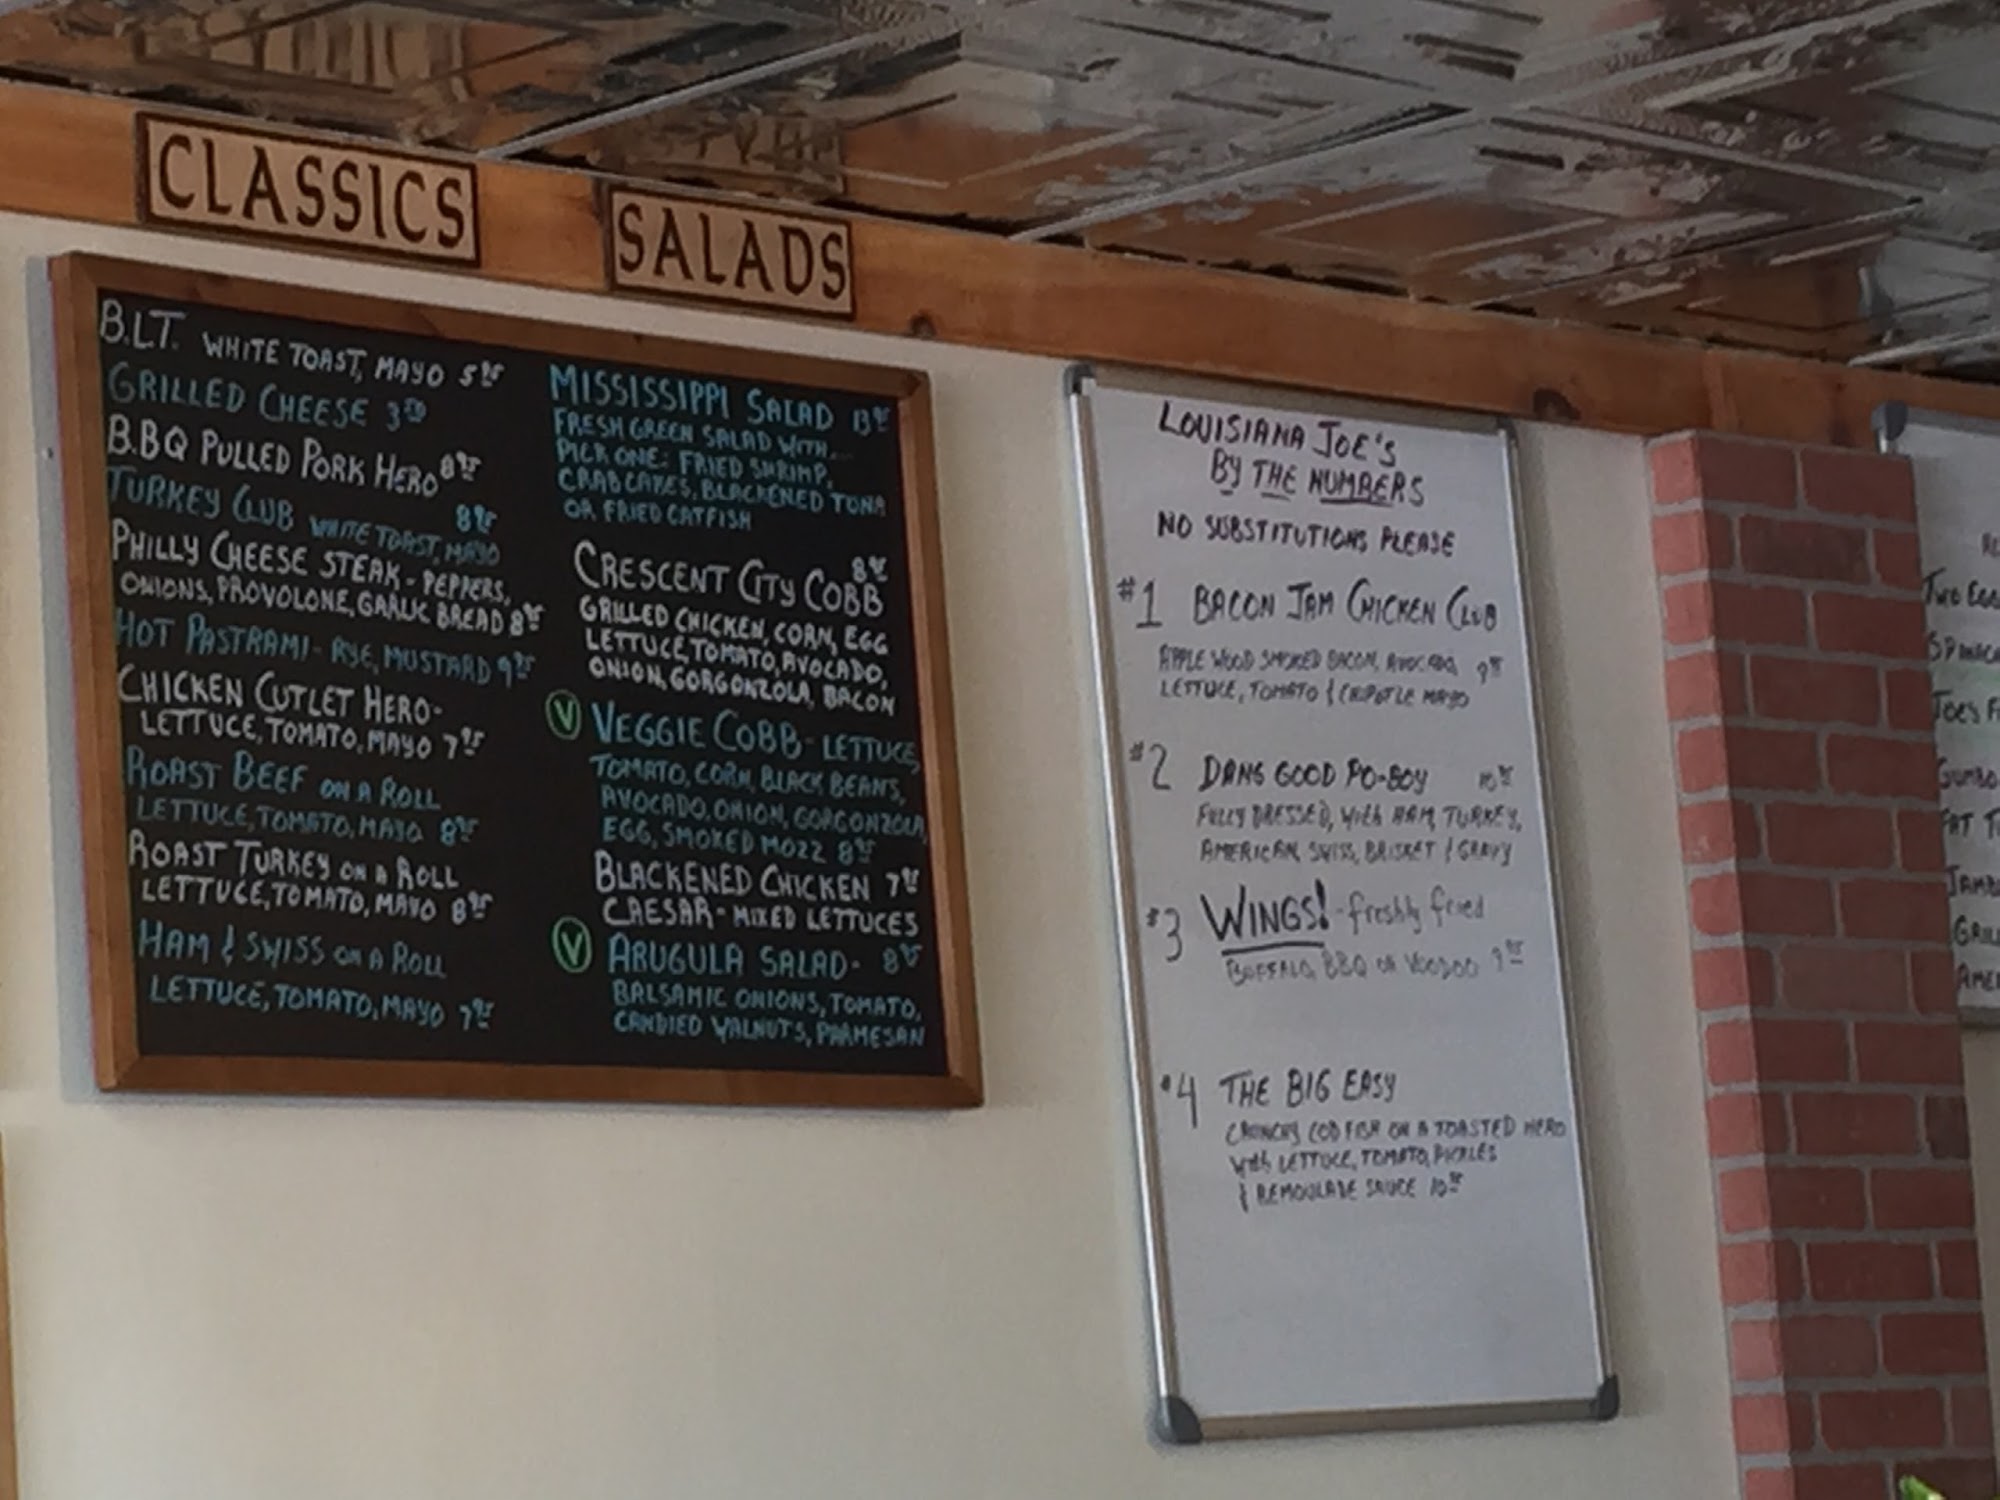 CLASSICS
B.L.T. WHITE TOAST, MAYO 5 95
GRILLED CHEESE 3 50
B.BQ PULLED PORK HERO 8 95
TURKEY CLUB WHITE TOAST, MAYO 8 95
PHILLY CHEESE STEAK - PEPPERS,
ONIONS, PROVOLONE, GARLIC BREAD 8 95
HOT PASTRAMI - RYE, MUSTARD 9 95
CHICKEN CUTLET HERO-
LETTUCE, TOMATO, MAYO 7 95
ROAST BEEF ON A ROLL
LETTUCE, TOMATO, MAYO 8 95
ROAST TURKEY ON A ROLL
LETTUCE, TOMATO, MAYO 8 95
HAM & SWISS ON A ROLL
LETTUCE, TOMATO, MAYO 7 95
SALADS
MISSISSIPPI SALAD 13 95
FRESH GREEN SALAD WITH...
PICK ONE: FRIED SHRIMP,
CRAB CAKES, BLACKENED TUNA
OR FRIED CATFISH
CRESCENT CITY COBB 8 95
GRILLED CHICKEN, CORN, EGG
LETTUCE, TOMATO, AVOCADO,
ONION, GORGONZOLA, BACON
V VEGGIE COBB - LETTUCE,
TOMATO, CORN, BLACK BEANS,
AVOCADO, ONION, GORGONZOLA,
EGG, SMOKED MOZZ 8 95
BLACKENED CHICKEN 7 95
CAESAR - MIXED LETTUCES
V ARUGULA SALAD - 8 95
BALSAMIC ONIONS, TOMATO,
CANDIED WALNUTS, PARMESAN
LOUISIANA JOE'S
BY THE NUMBERS
NO SUBSTITUTIONS PLEASE
#1 BACON JAM CHICKEN CLUB
APPLE WOOD SMOKED BACON, AVOCADO, 9 95
LETTUCE, TOMATO & CHIPOTLE MAYO
#2 DANG GOOD PO-BOY 10 95
FULLY DRESSED, WITH HAM, TURKEY,
AMERICAN, SWISS, BRISKET & GRAVY
#3 WINGS! - freshly fried
BUFFALO, BBQ OR VOODOO 9 95
#4 THE BIG EASY
CRUNCHY COD FISH ON A TOASTED HERO
with LETTUCE, TOMATO, PICKLES
& REMOULADE SAUCE 10 95
TWO EGG
JOE'S F
GUMBO